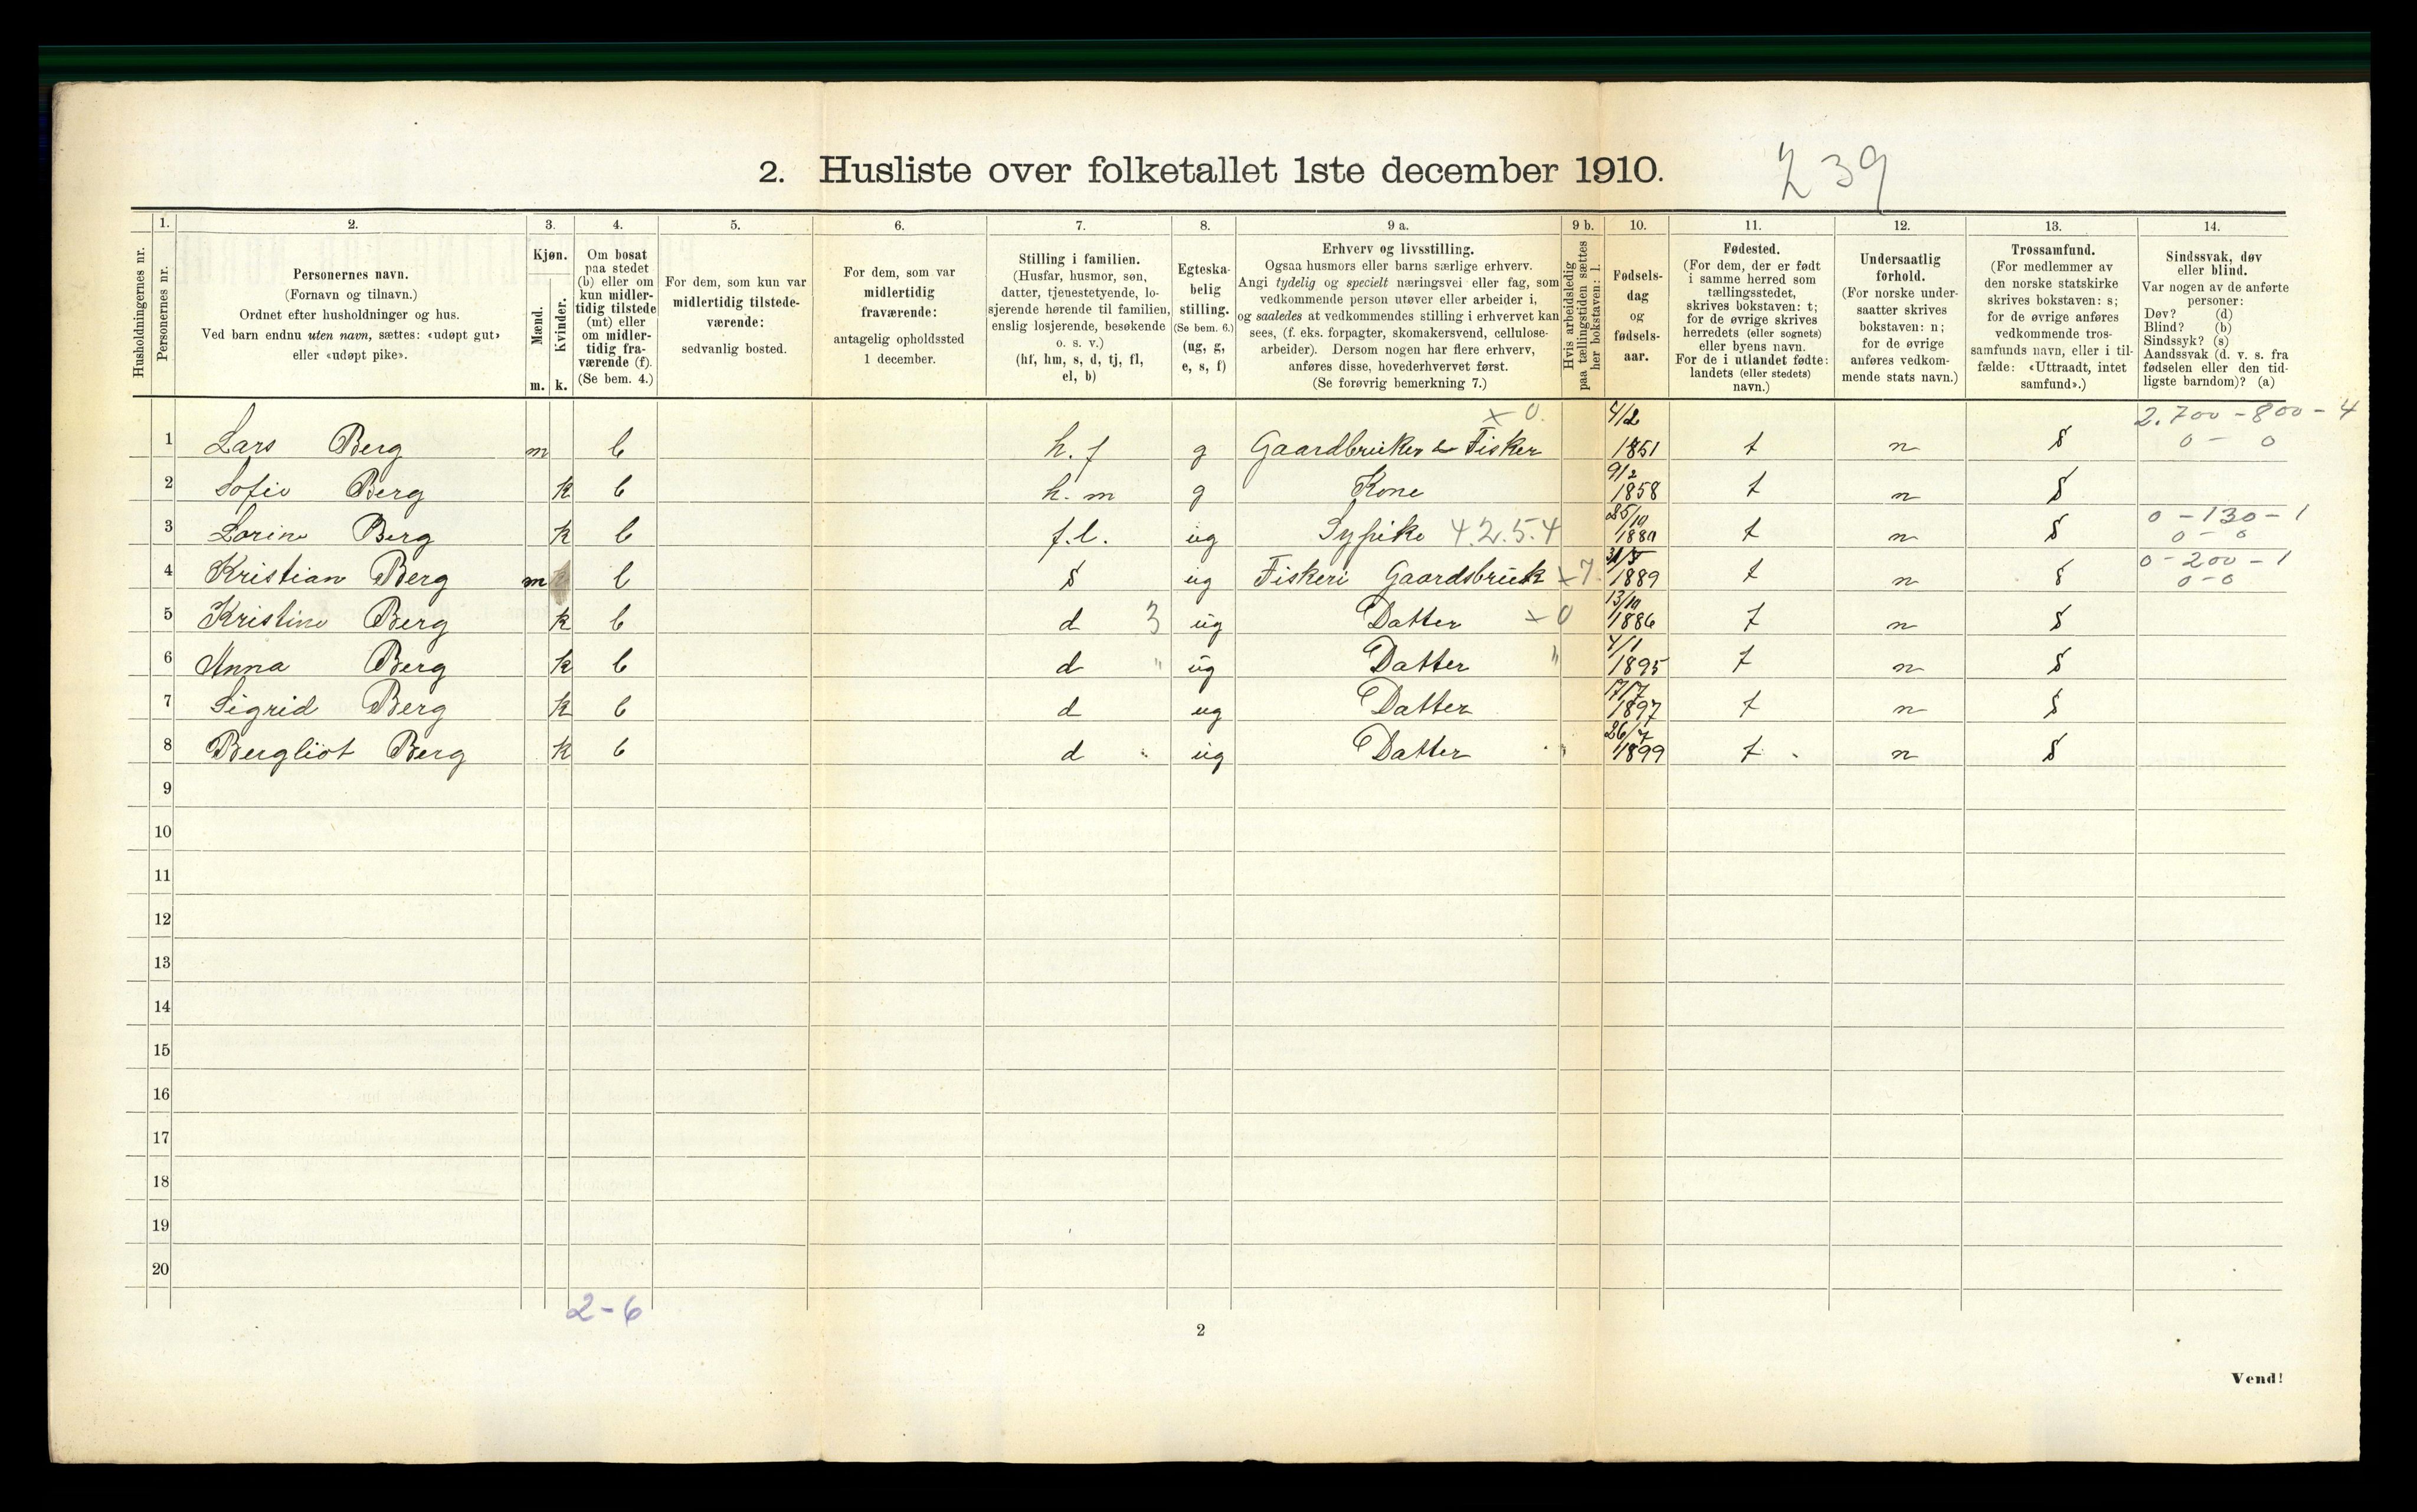 2. Husliste over folketallet 1ste december 1910. 239
1. 2. 3. 4. 5. 6. 7. 8. 9 a. 9 b. 10. 11. 12. 13. 14.
Husholdningernes nr.
Personernes nr.
Personernes navn.
(Fornavn og tilnavn.)
Ordnet efter husholdninger og hus.
Ved barn endnu uten navn, sættes: «udøpt gut»
eller «udøpt pike».
Kjøn.
Mænd.
Kvinder.
m. k.
Om bosat
paa stedet
(b) eller om
kun midler-
tidig tilstede
(mt) eller
om midler-
tidig fra-
værende (f).
(Se bem. 4.)
For dem, som kun var
midlertidig tilstede-
værende:
sedvanlig bosted.
For dem, som var
midlertidig
fraværende:
antagelig opholdssted
1 december.
Stilling i familien.
(Husfar, husmor, søn,
datter, tjenestetyende, lo-
sjerende hørende til familien,
enslig losjerende, besøkende
o. s. v.)
(hf, hm, s, d, tj, fl,
el, b)
Egteska-
belig
stilling.
(Se bem. 6.)
(ug, g,
e, s, f)
Erhverv og livsstilling.
Ogsaa husmors eller barns særlige erhverv.
Angi tydelig og specielt næringsvei eller fag, som
vedkommende person utøver eller arbeider i,
og saaledes at vedkommendes stilling i erhvervet kan
sees, (f. eks. forpagter, skomakersvend, cellulose-
arbeider). Dersom nogen har flere erhverv,
anføres disse, hovederhvervet først.
(Se forøvrig bemerkning 7.)
Hvis arbeidsledig
paa tællingstiden sættes
her bokstaven: l.
Fødsels-
dag
og
fødsels-
aar.
Fødested.
(For dem, der er født
i samme herred som
tællingsstedet,
skrives bokstaven: t;
for de øvrige skrives
herredets (eller sognets)
eller byens navn.
For de i utlandet fødte:
landets (eller stedets)
navn.)
Undersaatlig
forhold.
(For norske under-
saatter skrives
bokstaven: n;
for de øvrige
anføres vedkom-
mende stats navn.)
Trossamfund.
(For medlemmer av
den norske statskirke
skrives bokstaven: s;
for de øvrige anføres
vedkommende tros-
samfunds navn, eller i til-
fælde: «Uttraadt, intet
samfund».)
Sindssvak, døv
eller blind.
Var nogen av de anførte
personer:
Døv? (d)
Blind? (b)
Sindssyk? (s)
Aandssvak (d. v. s. fra
fødselen eller den tid-
ligste barndom)? (a)
x 0. 4/2 2.700 - 800 - 4
1 Lars Berg m b h. f g Gaardbruker & Fisker 1851 t n s 0 - 0
9/2
2 Sofie Berg k b h. m g Kone 1858 t n s
25/10 0 - 130 - 1
3 Lorine Berg k b f. l. ug Sypike 4.2.5.4 1880 t n s 0 - 0
31/5 0 - 200 - 1
4 Kristian Berg m b s ug Fiskeri Gaardsbruk x7. 1889 t n s 0-0
13/10
5 Kristine Berg k b d 3 ug Datter x 0 1886 t n s
4/1
6 Anna Berg k b d " ug Datter " 1895 t n s
17/7
7 Sigrid Berg k b d ug Datter 1897 t n s
26/7
8 Bergliot Berg k b d " ug Datter " 1899 t n s
9
10
11
12
13
14
15
16
17
18
19
20
2-6
2
Vend!